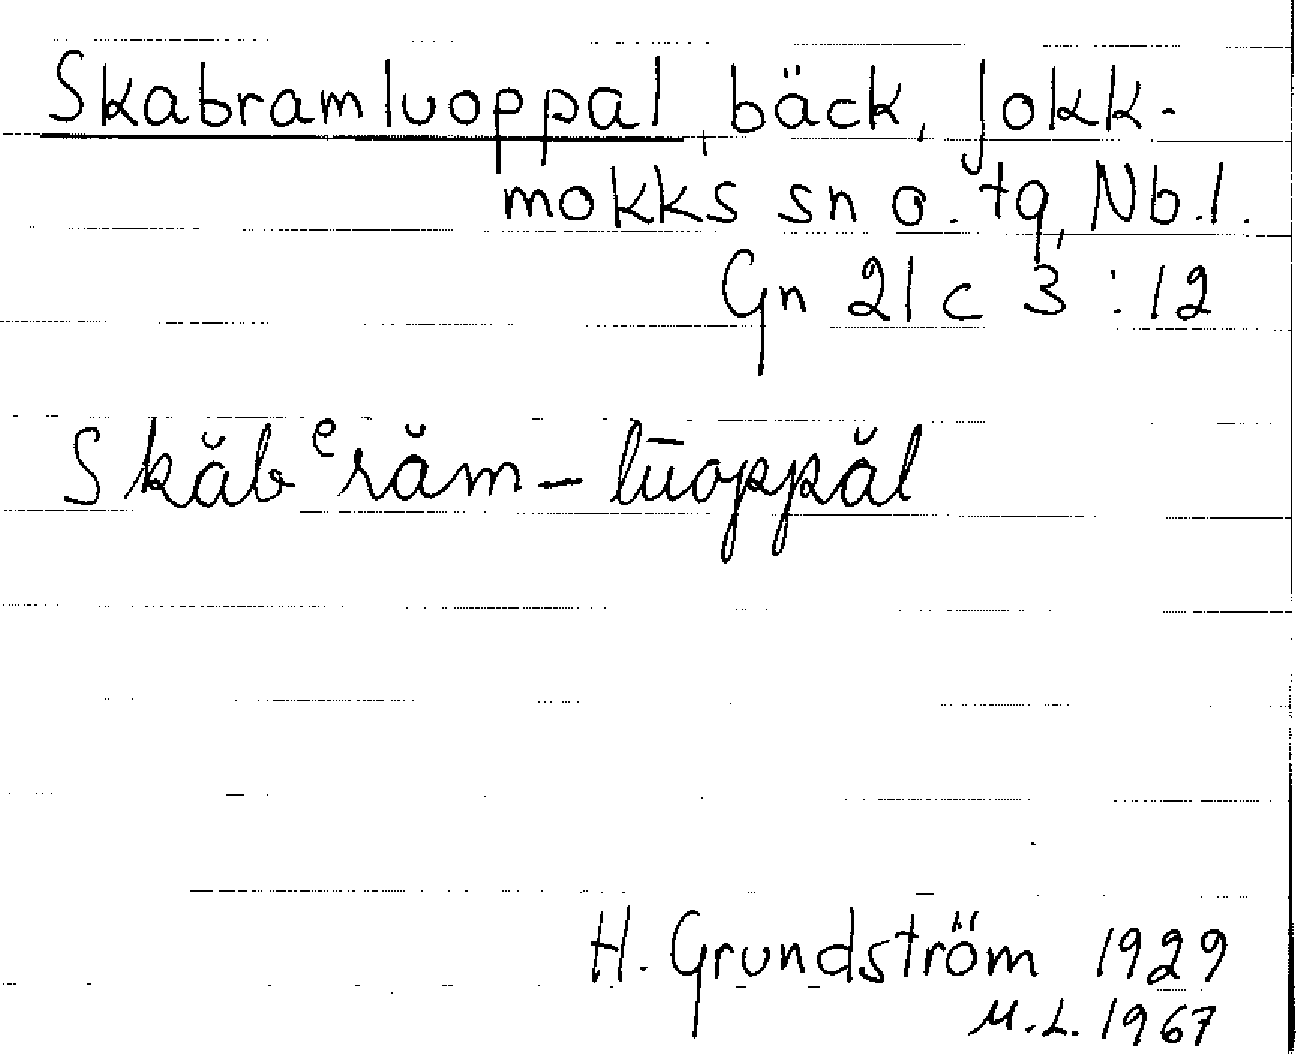 Skabramluoppal, bäck, Jokk-
mokks sn o. tg, Nb.l.
Gn 21 c 3 : 12
Skăbᵉrăm-lūoppăl
H. Grundström 1929
M.L. 1967